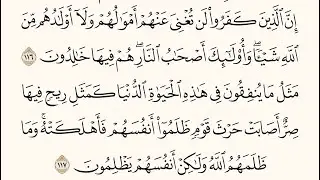 إِنَّ ٱلَّذِينَ كَفَرُوا۟ لَن تُغْنِىَ عَنْهُمْ أَمْوَٰلُهُمْ وَلَآ أَوْلَـٰدُهُم مِّنَ
ٱللَّهِ شَيْـًٔا ۖ وَأُو۟لَـٰٓئِكَ أَصْحَـٰبُ ٱلنَّارِ ۚ هُمْ فِيهَا خَـٰلِدُونَ ١١٦
مَثَلُ مَا يُنفِقُونَ فِى هَـٰذِهِ ٱلْحَيَوٰةِ ٱلدُّنْيَا كَمَثَلِ رِيحٍ فِيهَا
صِرٌّ أَصَابَتْ حَرْثَ قَوْمٍ ظَلَمُوٓا۟ أَنفُسَهُمْ فَأَهْلَكَتْهُ ۚ وَمَا
ظَلَمَهُمُ ٱللَّهُ وَلَـٰكِنْ أَنفُسَهُمْ يَظْلِمُونَ ١١٧